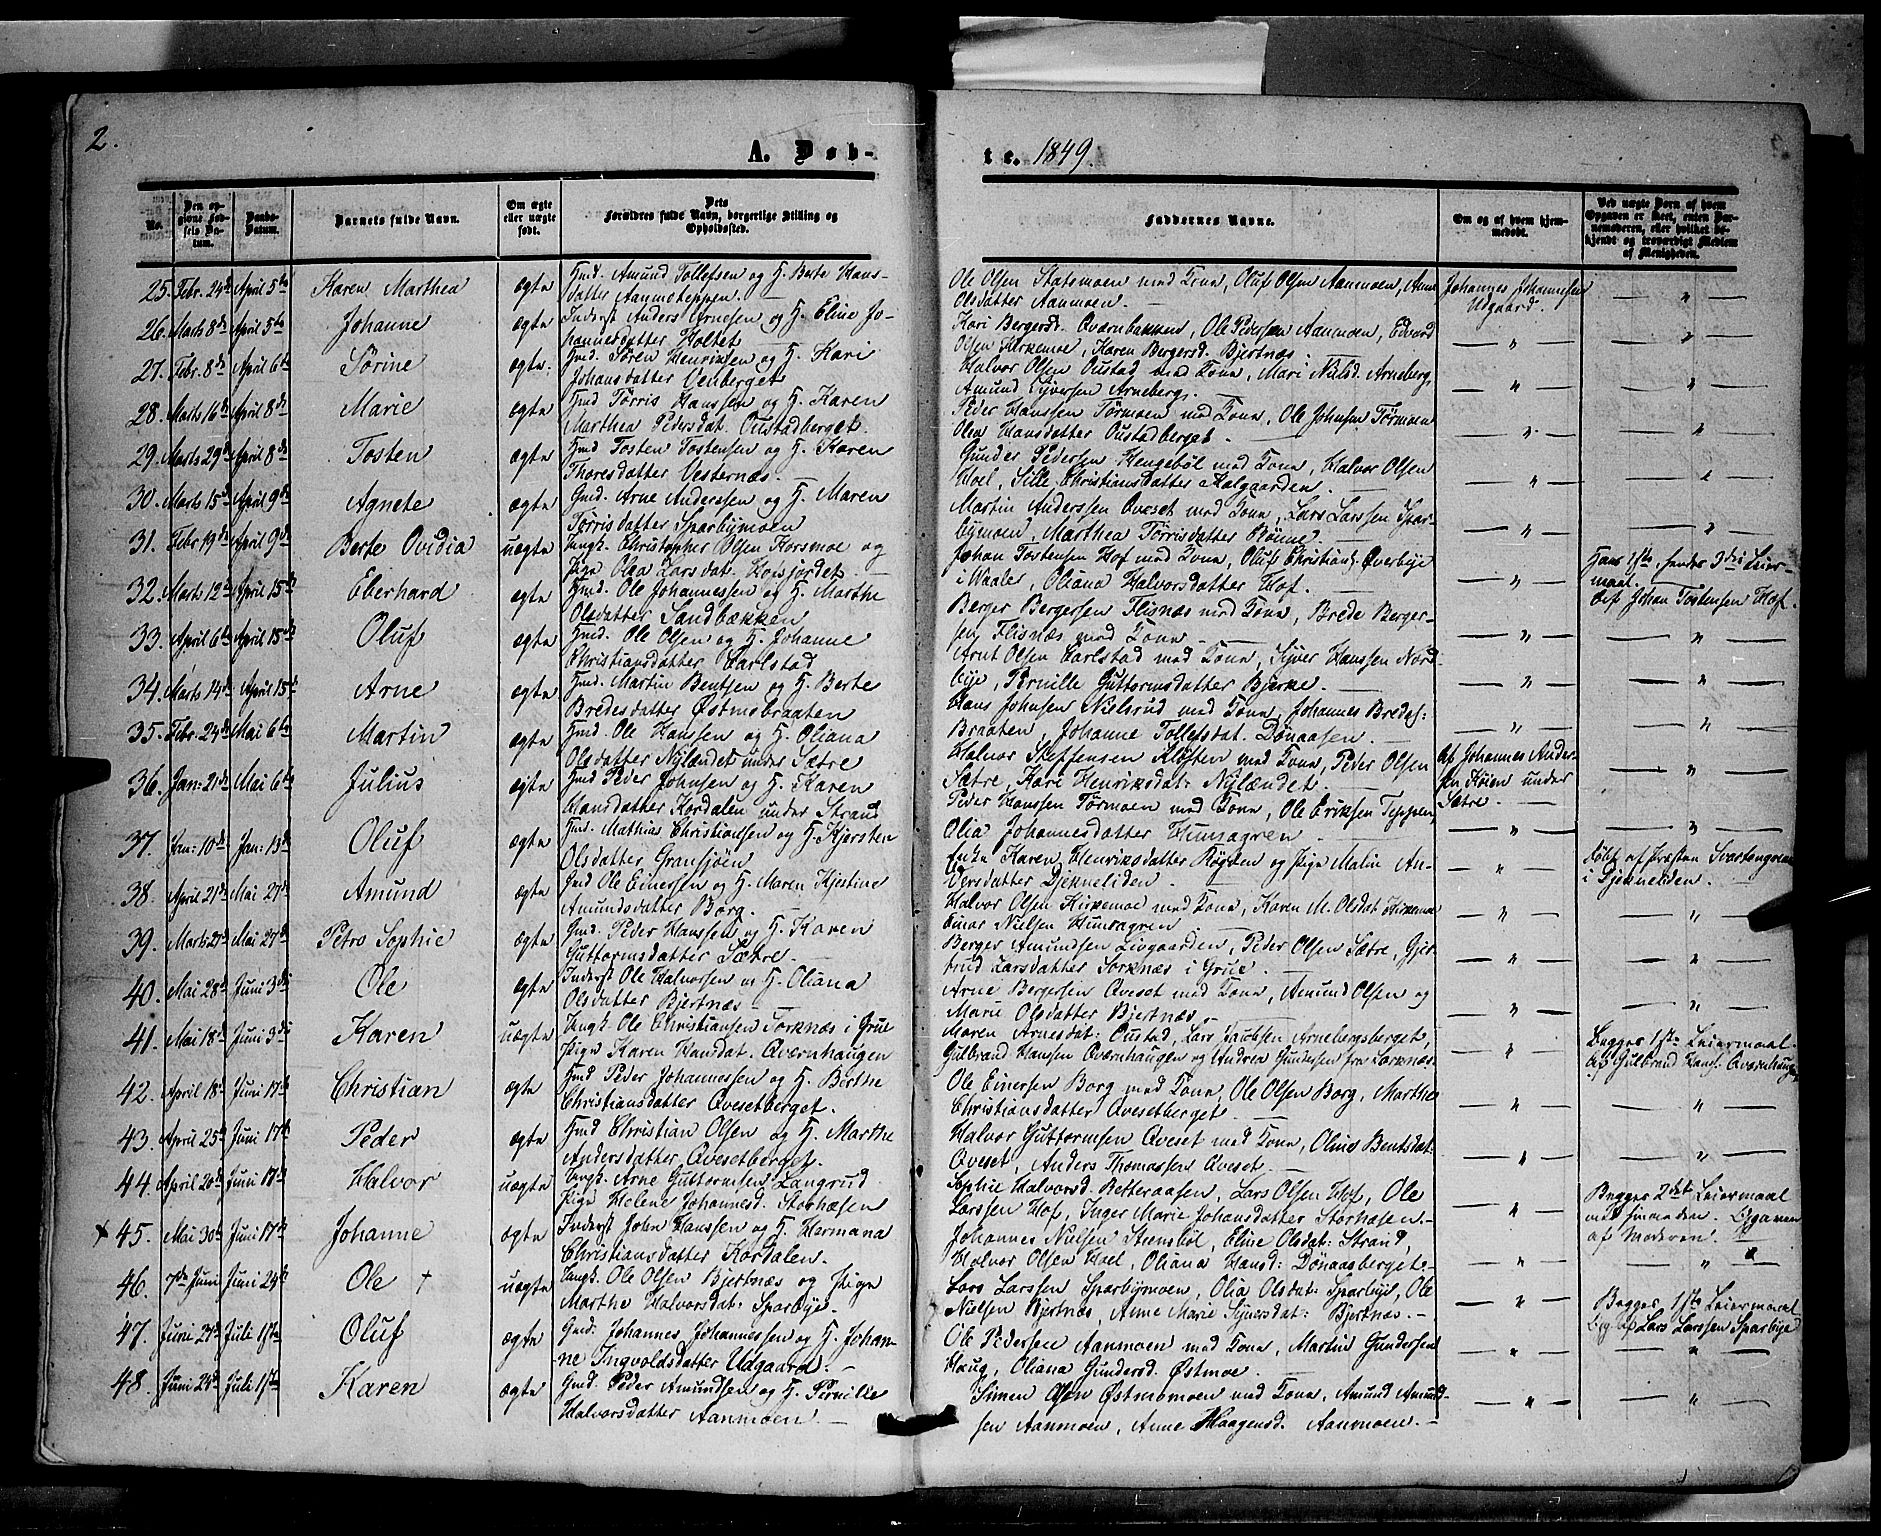 2.
A. Døb-
te. 1849.
No.
Den opgivne Fødsels Datum.
Daabs-Datum.
Barnets fulde Navn.
Om ægte eller uægte født.
Dets Forældres fulde Navn, borgerlige Stilling og Opholdssted.
Faddernes Navne.
Om og af hvem hjemmedøbt.
Ved uægte Børn af hvem Opgaven er skeet, enten Barnemoderen, eller hvilket bekjendt og troværdigt Medlem af Menigheden.
25. Febr. 24de April 5te Karen Marthea ægte Hmd. Amund Tollefsen og H. Berte Hans-
datter Aanmoteppen.
Ole Olsen Statsmoen med Kone, Oluf Olsen Aanmoen, Anne
Olsdatter Aanmoen.
Johannes Johannesen
Udgaard.
26. Marts 8de April 5te Johanne ægte Inderst Anders Arnesen og H. Eline Jo-
hannesdatter Holtet
Kari Bergersd. Qværnbakken, Ole Pedersen Aanmoen, Edvard
Olsen Kirkemoe, Karen Bergersd. Bjertnæs.
27. Febr. 8de April 6te Sørine ægte Hmd. Søren Henriksen og H. Kari
Johansdatter Venberget
Halvor Olsen Oustad med Kone, Mari Nilsd. Arneberg,
Amund Syversen Arneberg.
28. Marts 16de April 8de Marie ægte Hmd Tørris Hanssen og H. Karen
Marthea Pedersdat. Oustadberget.
Peder Hanssen Tørmoen med Kone, Ole Johnsen Tørmoen
Olea Hansdatter Oustadberget.
29. Marts 29de April 8de Tosten ægte Hmd Tosten Tostensen og H. Karen
Thoresdatter Vesternæs.
Gunder Pedersen Hengebøl med Kone, Halvor Olsen
Hoel, Sille Christiansdatter Kalgaarden.
30. Marts 15de April 9de Agnete ægte Gmd. Arne Andersen og H. Maren
Tørrisdatter Sparbymoen
Martin Anderssen Qveset med Kone, Lars Larssen Spar-
bymoen, Marthea Tørrisdatter Rønne.
31. Febr 19de April 9de Berte Ovidia uægte Ungk. Christopher Olsen Korsmoe og
Pige Olea Larsdat. Hofsjordet.
Johan Tostensen Hof med Kone, Oluf Christians. Overbye
i Waaler, Oliana Halvorsdatter Hof.
Hans 1ste, hendes 3die Leier-
maal.
Af Johan Tostensen Hof.
32. Marts 12te April 15de Eberhard ægte Hmd. Ole Johannessen og H. Marthe
Olsdatter Sandbækken
Berger Bergersen Flisnæs med Kone, Brede Berger-
sen Flisnæs med Kone
33. April 6te April 15de Oluf ægte Hmd. Ole Olsen og H. Johanne
Christiansdatter Carlstad
Arnt Olsen Carlstad med Kone, Syver Hanssen Nord-
bye, Pernille Guttormsdatter Bjerke.
34. Marts 14de April 15de Arne ægte Hmd. Martin Bentsen og H. Berte
Bredesdatter Østmobraaten
Hans Johnsen Nielsrud med Kone, Johannes Bredes:
Braaten, Johanne Tollefsdat. Dønaasen.
35. Febr. 24de Mai 6te Martin ægte Hmd. Ole Hanssen og H. Oliana
Olsdatter Nylandet under Sætre
Halvor Steffensen Kløften med Kone, Peder Olsen
Sætre, Kari Henriksdat: Nylændet.
Af Johannes Ander-
sen Køien under
Sætre.
36. Jan: 21de Mai 6te Julius ægte Hmd Peder Johnsen og H. Karen
Hansdatter Kordalen under Strand
Peder Hanssen Tørmoen med Kone, Ole Eriksen Teppen,
Olia Johannesdatter Hunsagren
37. Jan: 10de Jan: 13de Oluf ægte Hmd. Mathias Christiansen og H. Kjersten
Olsdatter Gransjøen
Enke Karen Henriksdatter Røgden og Pige Malin An-
dersdatter Djekneliden.
døbt af Præsten Svartengren
i Djekneliden.
38. April 21de Mai 27de Amund ægte Gmd Ole Einersen og H. Maren Kjestine
Amundsdatter Borg.
Halvor Olsen Kirkemoe med Kone, Karen M. Olsdat. Kirkemoe
Einar Nielsen Hunsagren
39. Marts 27de Mai 27de Petro Sophie ægte Gmd. Peder Hanssen og H. Karen
Guttormsdatter Sætre.
Berger Amundsen Livgaarden, Peder Olsen Sætre, Gjer-
trud Larsdatter Sorknæs i Grue.
40. Mai 28de Juni 3die Ole ægte Inderst Ole Halvorsen og H. Oliana
Olsdatter Bjertnæs
Arne Bergersen Qveset med Kone, Amund Olsen og
Marie Olsdatter Bjertnæs.
41. Mai 18de Juni 3die Karen uægte Ungk. Ole Christiansen Sorknæs i Grue
Pige Karen Hansdat. Qværnhaugen
Maren Arnesdat: Oustad, Lars Jacobsen Arnebergsberget,
Gulbrand Hansen Qværnhaugen og Andrea Gundersen fra Sorknæs.
Begges 1ste Leiermaal.
Af Gulbrand Hans. Qværnhaugen
42. April 18de Juni 17de Christian ægte Hmd Peder Johannessen og H. Berthe
Christiansdatter Qvesetberget.
Ole Einersen Borg med Kone, Ole Olsen Borg, Marthe
Christiansdatter Qvesetberget
43. April 25de Juni 17de Peder ægte Hmd Christian Olsen og H. Marthe
Andersdatter Qvesetberget.
Halvor Guttormsen Qveset med Kone, Oline Bentsdat:
Qveset, Anders Thomassen Qveset.
44. April 20de Juni 17de Halvor uægte Ungk. Arne Guttormsen Langrud
Pige Helene Johannesd. Storhæsen
Sophie Halvorsd. Betteraasen, Lars Olsen Hof, Ole
Larssen Hof, Inger Marie Johansdatter Storhæsen.
Begges 2det Leiermaal
med hinanden. Opgaven
af Moderen.
+ 45. Mai 30de Juni 17de Johanne ægte Inderst John Hanssen og H. Hermana
Christiansdatter Kordalen.
Johannes Nielsen Steensbøl, Eline Olsdat: Strand,
Halvor Olsen Hoel, Oliana Hansd: Dønaasberget.
46. 7de Juni Juni 24de Ole + uægte Ungk. Ole Olsen Bjertnæs og Pige
Marthe Halvorsdat: Sparbye.
Lars Larssen Sparbymoen, Olia Olsdat: Sparbye, Ole
Nielsen Bjertnæs, Anne Marie Syversdat: Bjertnæs.
Begges 1ste Leiermaal
Af Lars Larssen Sparbye
47. Juni 27de Juli 1ste Oluf ægte Gmd. Johannes Johannessen og H. Johan-
ne Ingvoldsdatter Udgaard.
Ole Pedersen Aanmoen med Kone, Martin Gundersen
Haug, Oliana Gundersd. Østmoe.
48. Juni 24de Juli 1ste Karen ægte Gmd. Peder Amundsen og H. Pernille
Halvorsdatter Aanmoen.
Simen Olsen Østmomoen med Kone, Amund Amund-
sen Aanmoen, Anne Haagensd. Aanmoen.